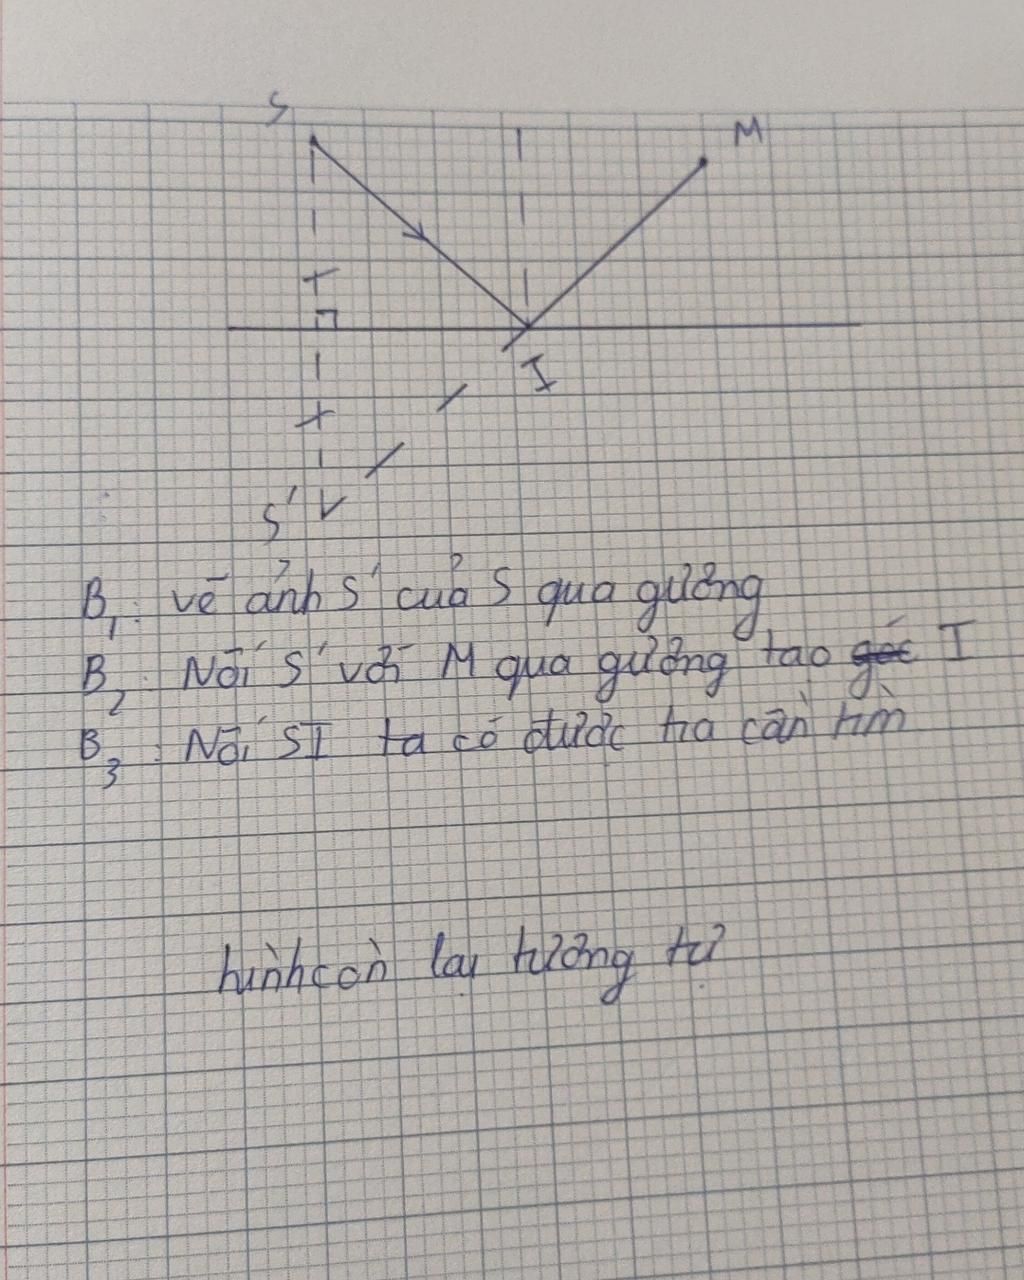 S
M
I
S'
B₁: vẽ ảnh S' của S qua gường
B₂: Nối S' với M qua gường tạo I
B₃: Nối SI ta có được tia cần tìm
hình còn lại tương tự